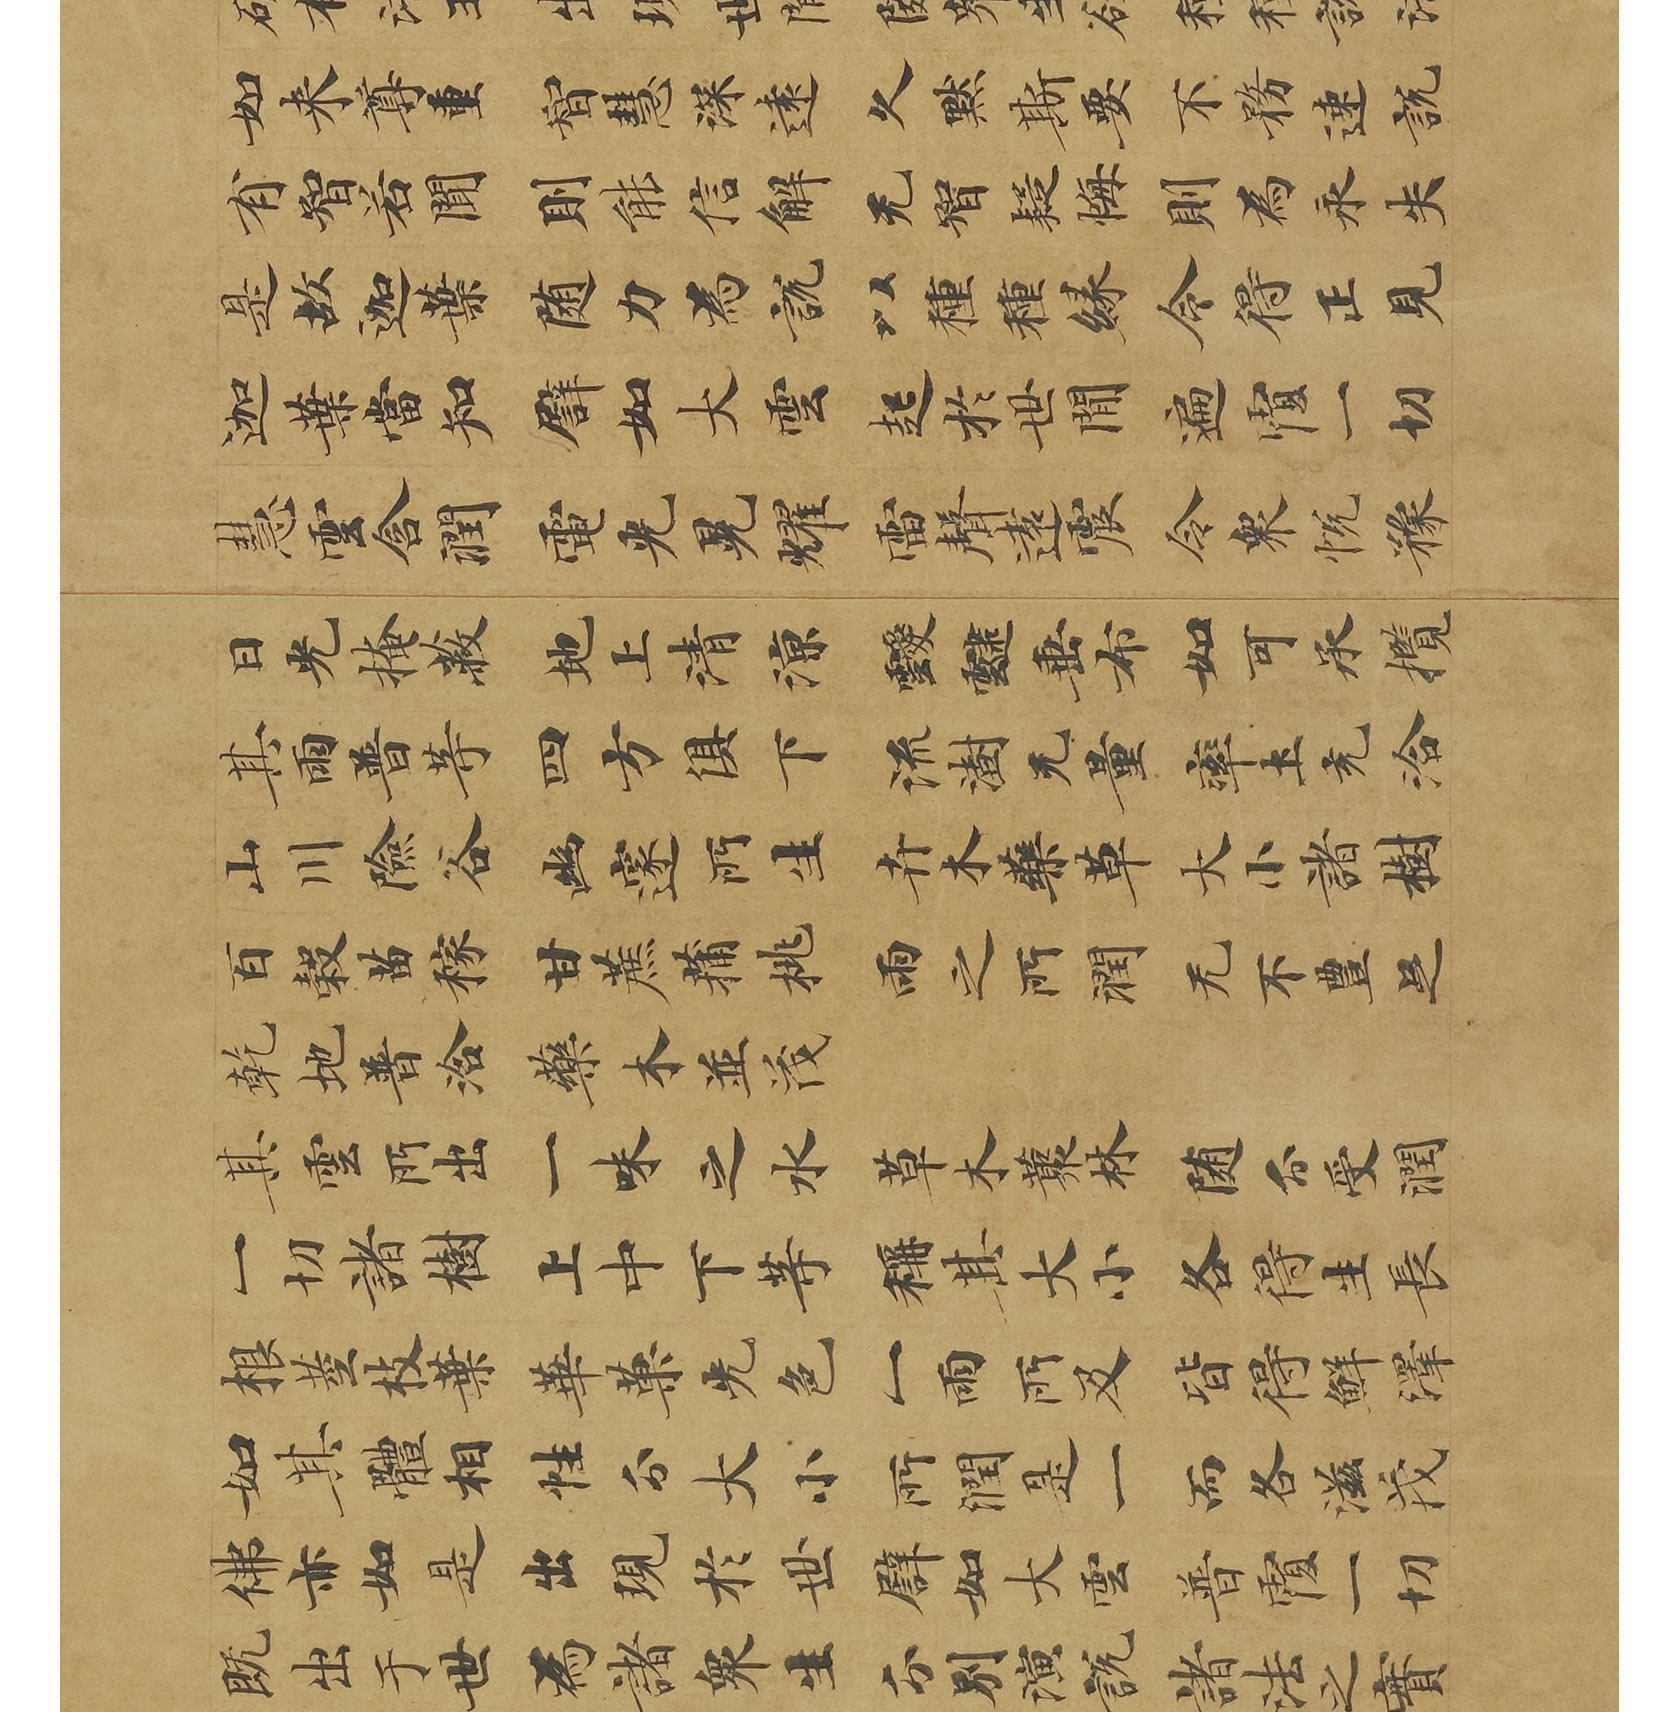 如来尊重 智慧深遠 久黙斯要 不務速說
有智若聞 則能信解 无智疑悔 則為永失
是故迦葉 随力為說 以種種緣 令得正見
迦葉當知 譬如大雲 起於世間 遍覆一切
慧雲含潤 電光晃耀 雷聲遠震 令衆悅豫
日光掩蔽 地上清涼 靉靆垂布 如可承攬
其雨普等 四方俱下 流澍无量 率土充洽
山川險谷 幽邃所生 卉木藥草 大小諸樹
百穀苗稼 甘蔗蒲桃 雨之所潤 无不豐足
乾地普洽 藥木並茂
其雲所出 一味之水 草木叢林 随分受潤
一切諸樹 上中下等 稱其大小 各得生長
根莖枝葉 華菓光色 一雨所及 皆得鮮澤
如其體相 性分大小 所潤是一 而各滋茂
佛亦如是 出現於世 譬如大雲 普覆一切
既出于世 為諸衆生 分別演說 諸法之實